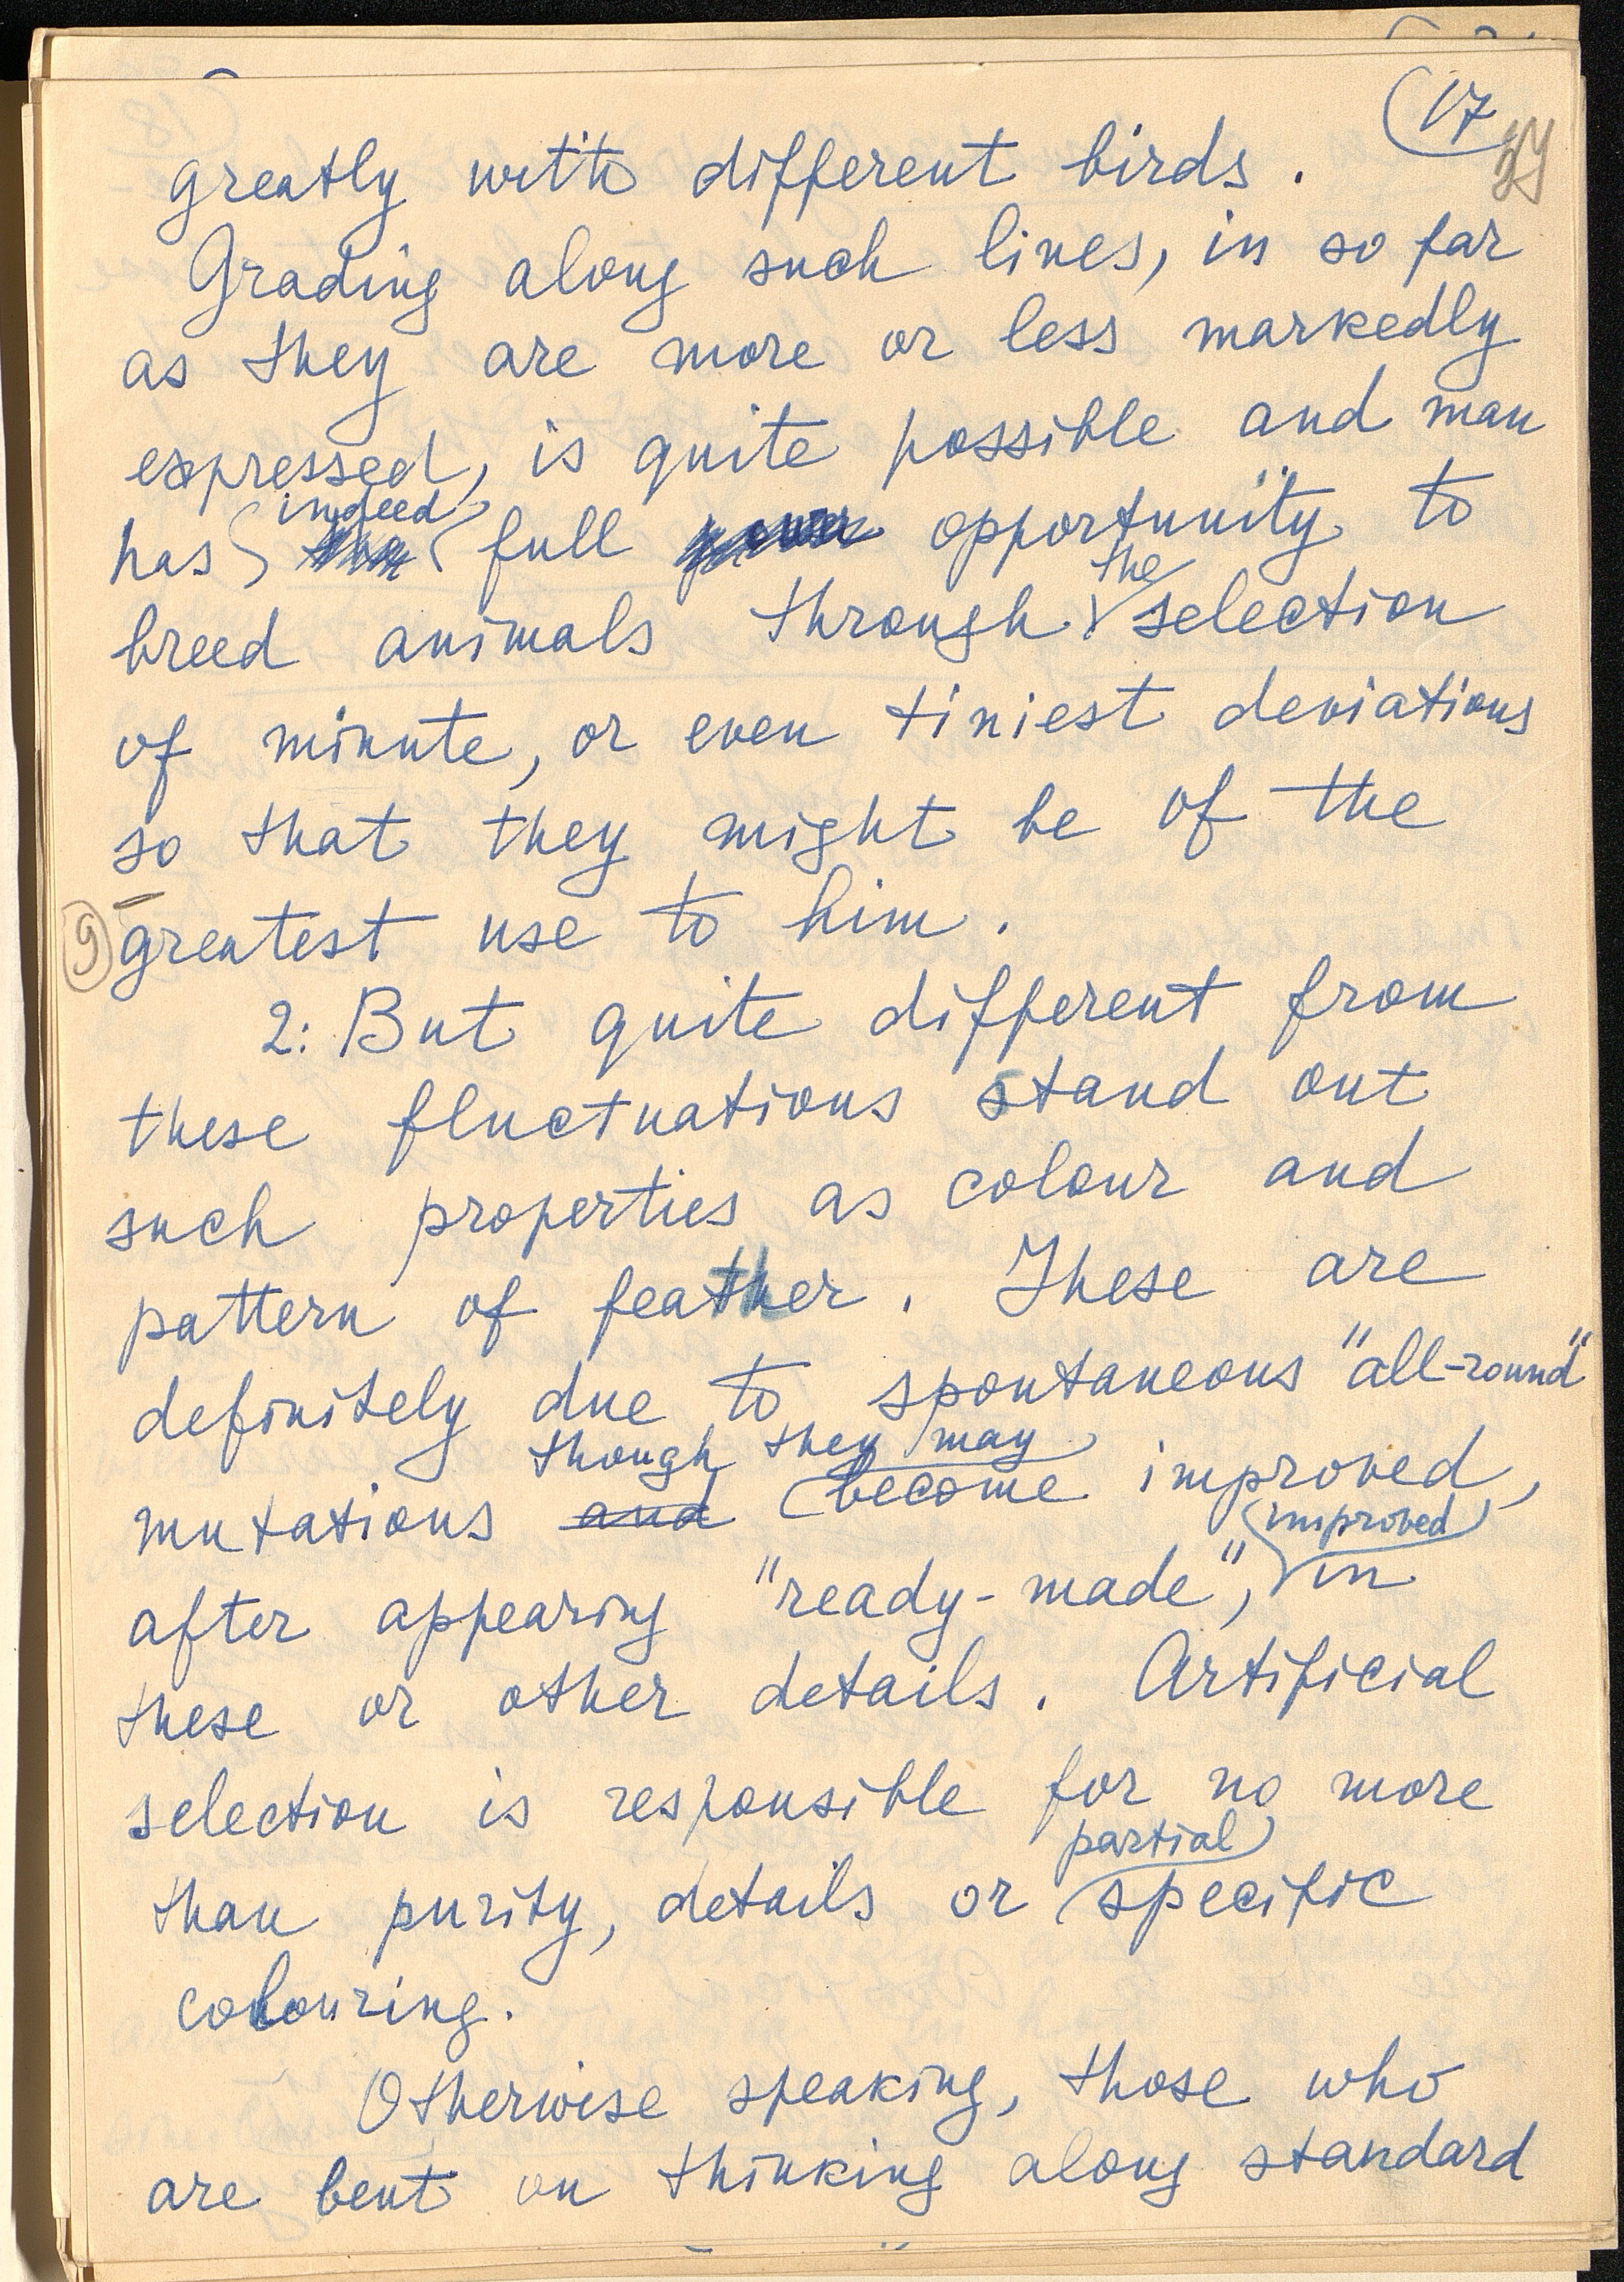 (17
greatly with different birds.
Grading along such lines, in so far
as they are more or less markedly
expressed, is quite possible and man
has indeed full power opportunity to
breed animals through the selection
of minute, or even tiniest deviations
so that they might be of the
9 greatest use to him.
2: But quite different from
these fluctuations stand out
such properties as colour and
pattern of feather. These are
definitely due to spontaneous "all-round"
though they may
mutations and become improved,
(improved)
after appearing "ready-made", in
these or other details. Artificial
selection is responsible for no more
partial
than purity, details or specific
colouring.
Otherwise speaking, those who
are bent on thinking along standard